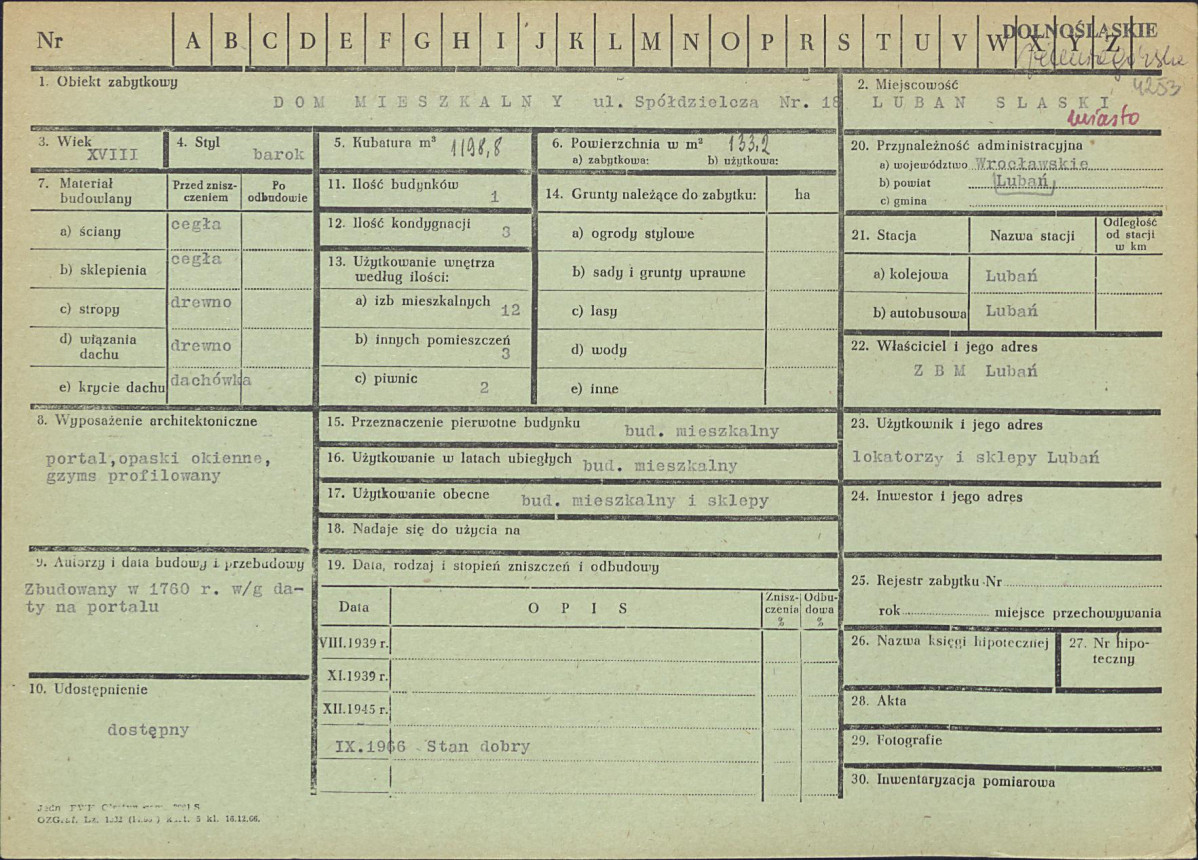 Nr A B C D E F G H I J K L M N O P R S T U V W X Y Z
DOLNOŚLĄSKIE
4253
1. Obiekt zabytkowy
DOM MIESZKALNY ul. Spółdzielcza Nr. 18
2. Miejscowość
LUBAN SLASKI,
miasto
3. Wiek
XVIII
4. Styl
barok
5. Kubatura m³ 1198,8
6. Powierzchnia w m² 133,2
a) zabytkowa: b) użytkowa:
7. Materiał budowlany
Przed zniszczeniem
Po odbudowie
a) ściany cegła
b) sklepienia cegła
c) stropy drewno
d) wiązania dachu drewno
e) krycie dachu dachówka
8. Wyposażenie architektoniczne
portal,opaski okienne,
gzyms profilowany
9. Autorzy i data budowy i przebudowy
Zbudowany w 1760 r. w/g da-
ty na portalu
10. Udostępnienie
dostępny
11. Ilość budynków
1
12. Ilość kondygnacji
3
13. Użytkowanie wnętrza
według ilości:
a) izb mieszkalnych
12
b) innych pomieszczeń
3
c) piwnic
2
14. Grunty należące do zabytku: ha
a) ogrody stylowe
b) sady i grunty uprawne
c) lasy
d) wody
e) inne
15. Przeznaczenie pierwotne budynku
bud. mieszkalny
16. Użytkowanie w latach ubiegłych bud. mieszkalny
17. Użytkowanie obecne bud. mieszkalny i sklepy
18. Nadaje się do użycia na
19. Data, rodzaj i stopień zniszczeń i odbudowy
Data OPIS
Znisz-
czenia
%
Odbu-
dowa
%
VIII.1939 r.
XI.1939 r.
XII.1945 r.
IX.1966 Stan dobry
20. Przynależność administracyjna
a) województwo Wrocławskie
b) powiat Lubań
c) gmina
21. Stacja Nazwa stacji
Odległość
od stacji
w km
a) kolejowa Lubań
b) autobusowa Lubań
22. Właściciel i jego adres
Z B M Lubań
23. Użytkownik i jego adres
lokatorzy i sklepy Lubań
24. Inwestor i jego adres
25. Rejestr zabytku Nr
rok miejsce przechowywania
26. Nazwa księgi hipotecznej
27. Nr hipo-
teczny
28. Akta
29. Fotografie
30. Inwentaryzacja pomiarowa
5 kl. 16.12.66.